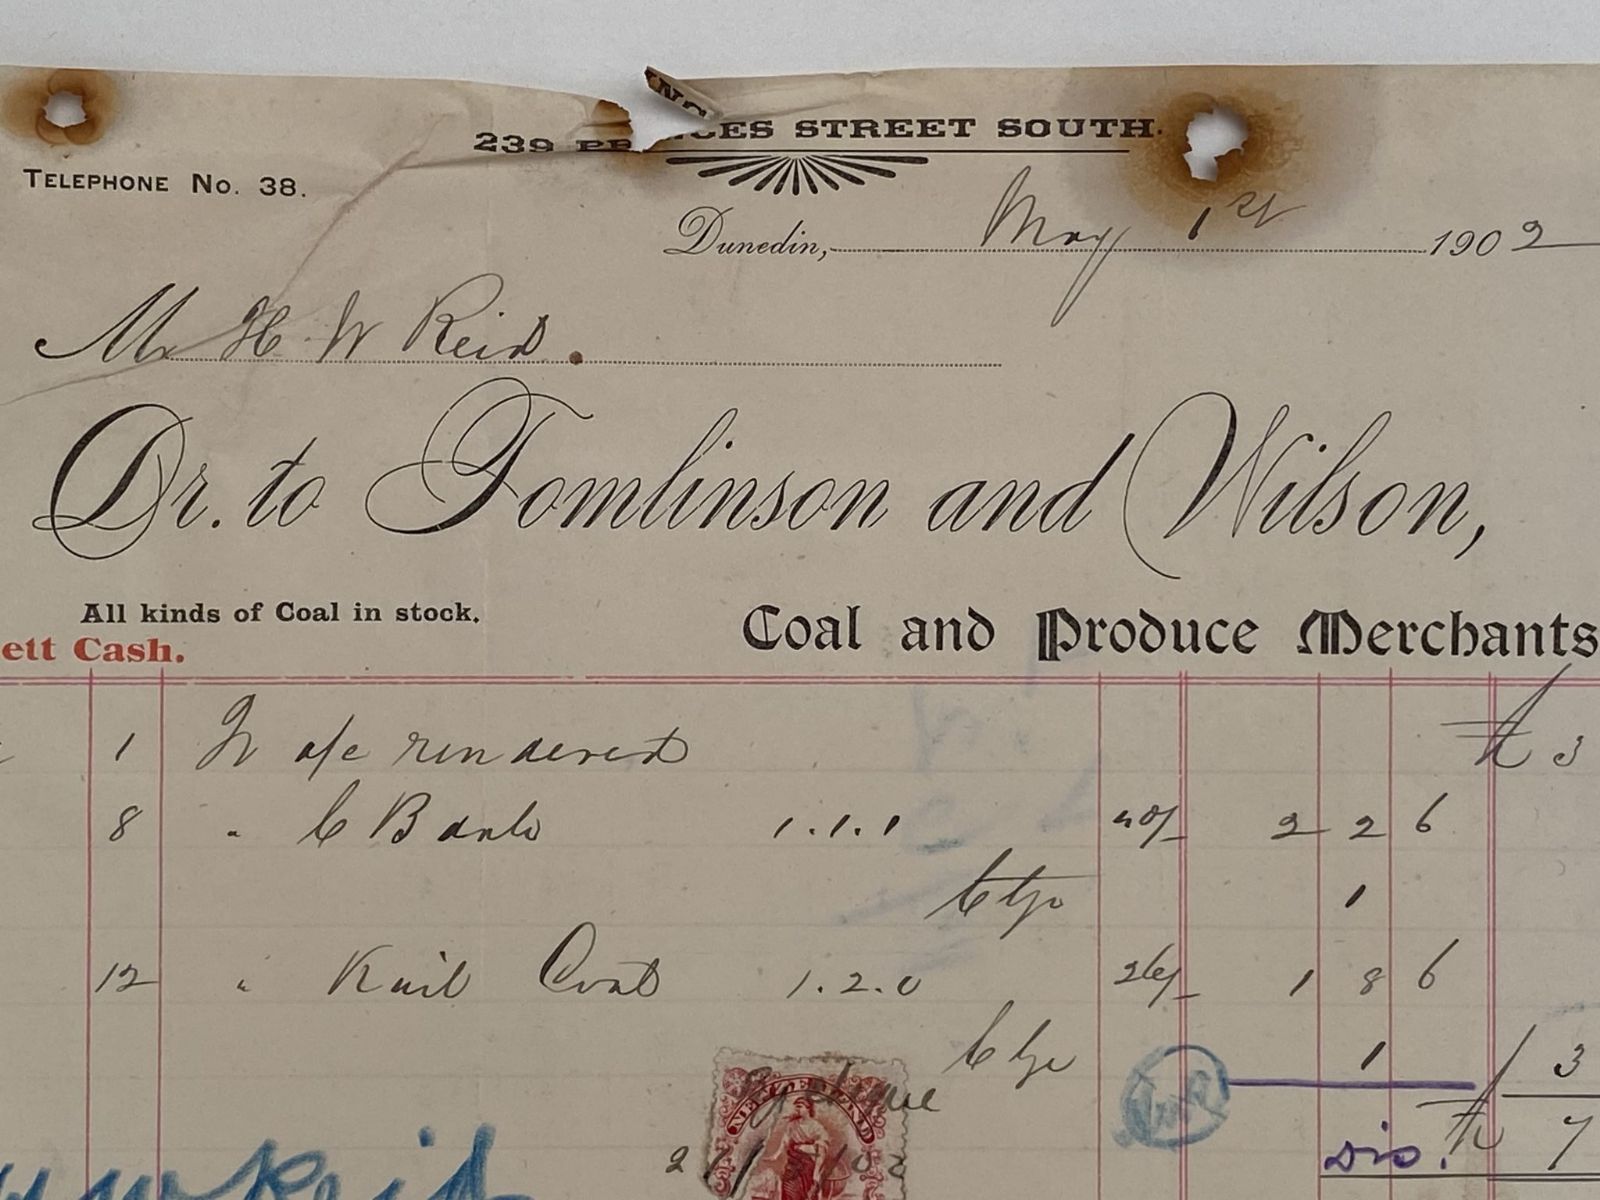 239 PR CES STREET SOUTH.
TELEPHONE No. 38.
Dunedin, May 1st 1902
Mr H W Reid.
Dr. to Tomlinson and Wilson,
All kinds of Coal in stock.
ett Cash.
Coal and Produce Merchants
1 To a/c rendered £ 3
8 " 1.1.1 40/- 2 2 6
Ctge 1
12 " Coal 1.2.0 26/- 1 8 6
Ctge 1 3
£ 7
Dis.
NEW ZEALAND
Reid